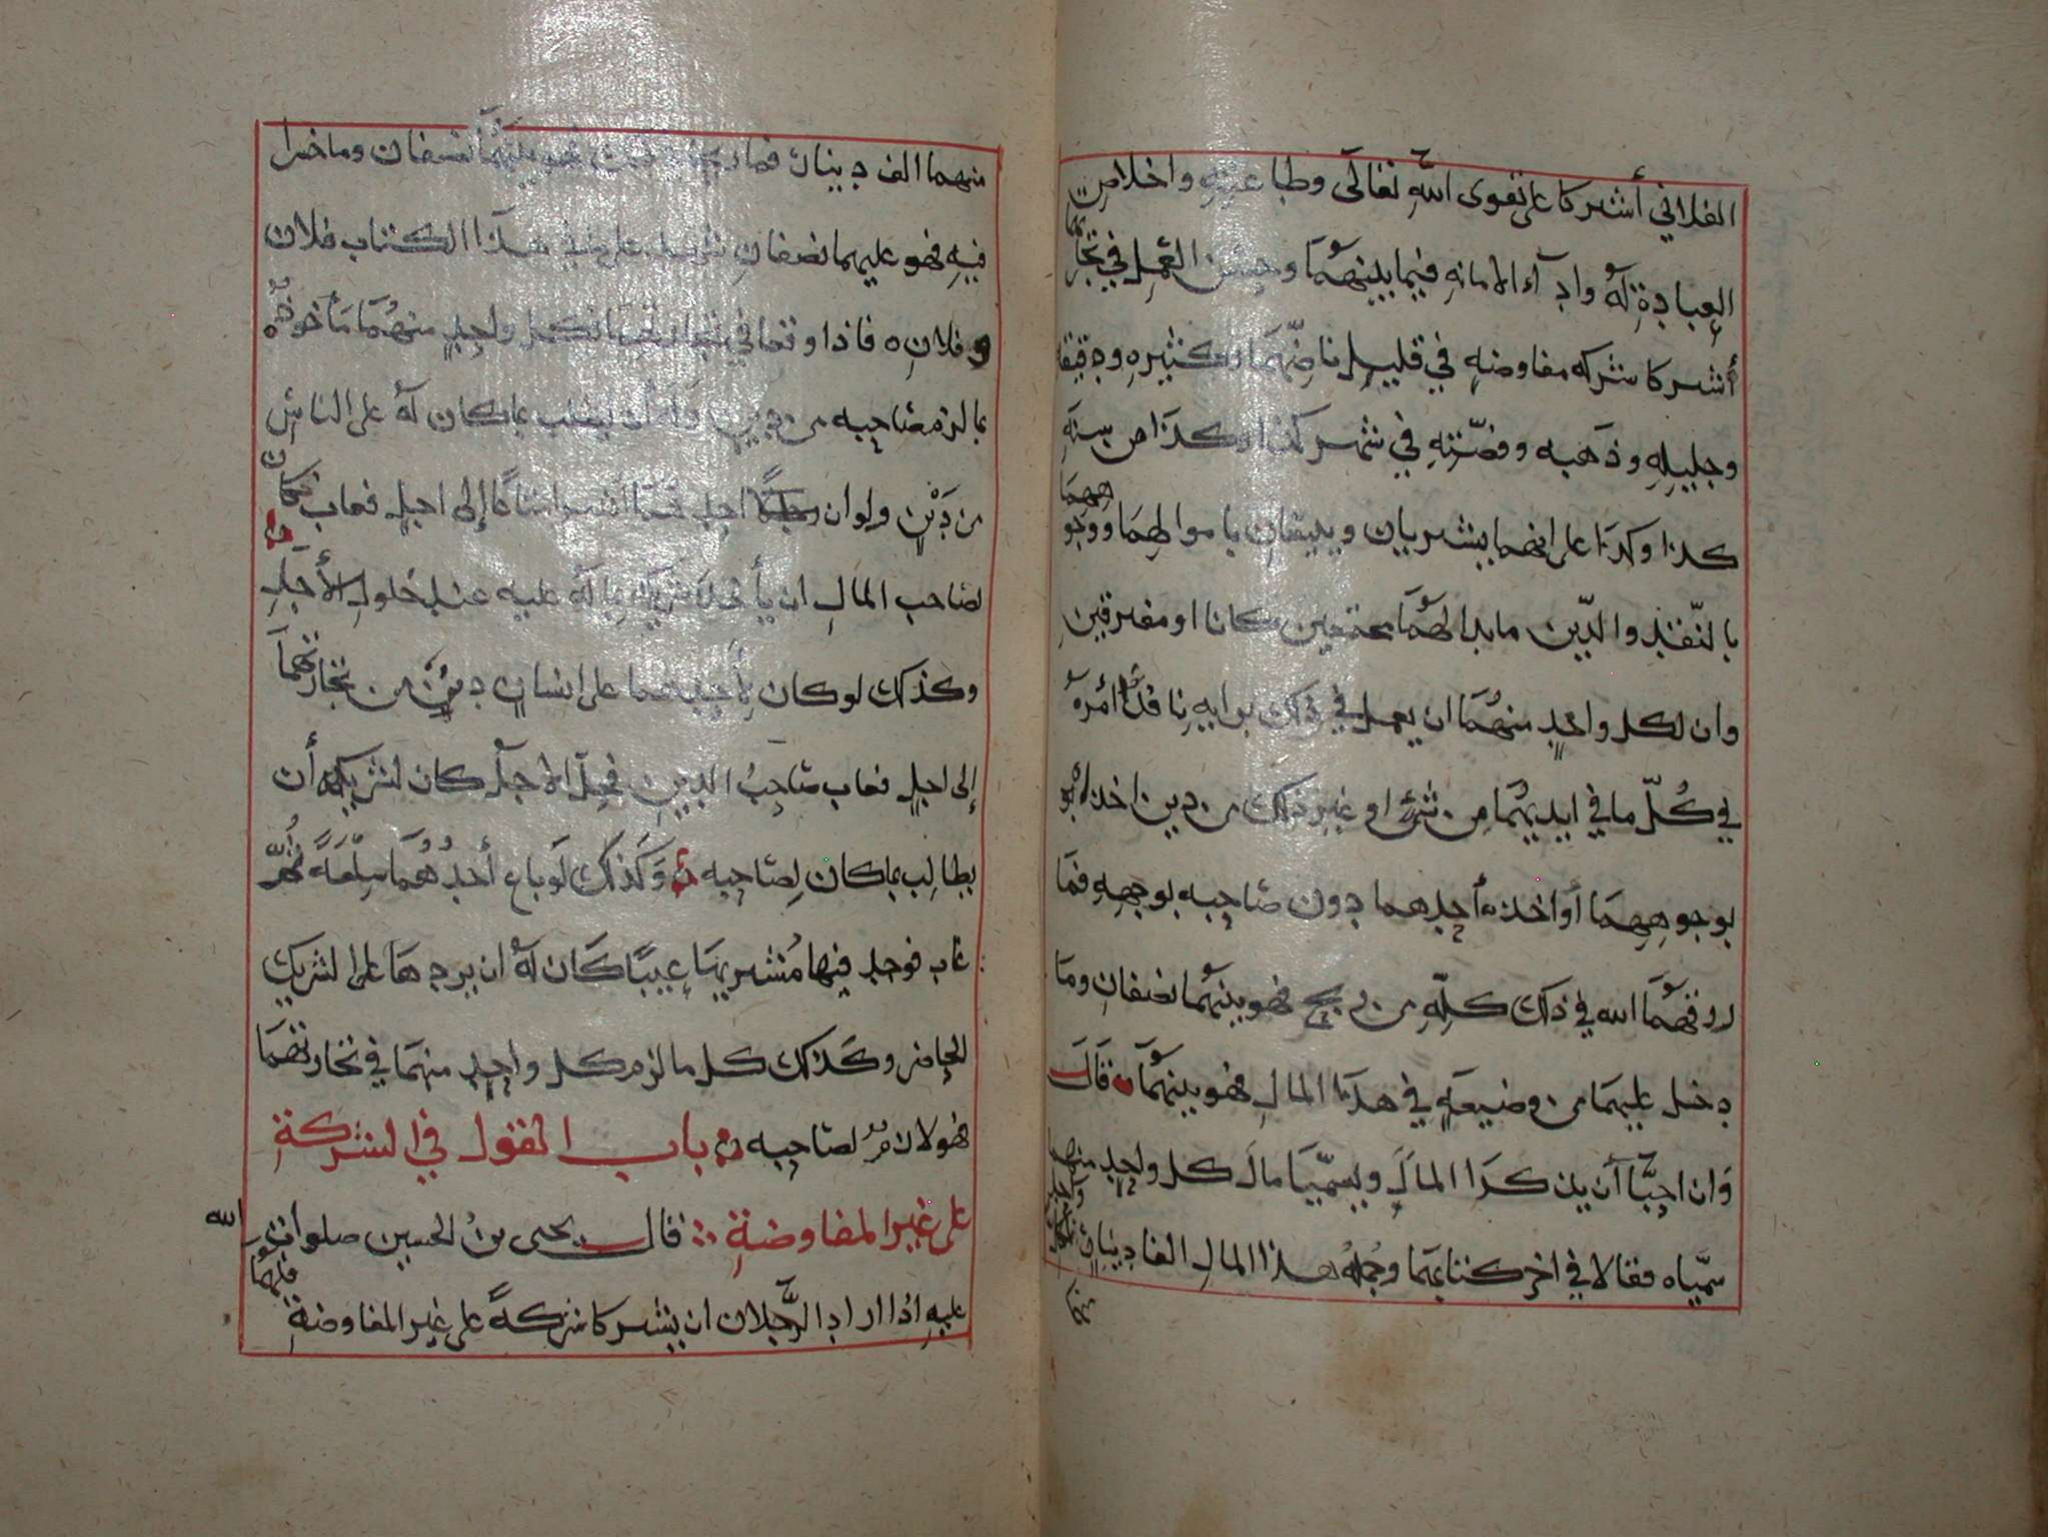 الفلاني أشتركا على تقوى الله تعالى وطاعته واخلاص
العبادة له واداء الامانه فيما بينهما وحسن العمل في تجارتهما
أشتركا شركه مفاوضه في قليل ناضهما وكثيره ودقيقه
وجليله وذهبه وفضته في شهر كذا وكذا من سنة
كذا وكذا على انهما يشتريان ويبيعان باموالهما ووجوههما
بالنقد والدين ما بدا لهما مجتمعين كانا او مفترقين
وان لكل واحد منهما ان يعمل في ذلك برايه نافذا أمره
في كل ما في ايديهما من شرى او غير ذلك من دين اخذاه
بوجوههما أو اخذه أحدهما دون صاحبه بوجهه فما
رزقهما الله في ذلك كله من ربح فهو بينهما نصفان وما
دخل عليهما من وضيعة في هذا المال فهو بينهما قال
وان احبا أن يذكرا المال ويسميا مال كل واحد منهما
سمياه فقالا في اخر كتابهما وجملة هذا المال الفا دينار
منهما الف دينار فما ربحا فيه فهو بينهما نصفان وما خسرا
فيه فهو عليهما نصفان شهد على في هذا الكتاب فلان
وفلان ه فاذا وقعا في تجارتهما فكل واحد منهما مأخوذ
بما لزم صاحبه من دين وله أن يطلب بما كان له على الناس
من دين ولو ان أحدهما اشترا متاعا إلى اجل فغاب كان
لصاحب المال ان يأخذ شريكه بما له عليه عند حلول الأجل
وكذلك لو كان لأحدهما على انسان دين من تجارتهما
إلى اجل فغاب صاحب الدين فحل الاجل كان لشريكه أن
يطالب بما كان لصاحبه وكذلك لو باع أحدهما سلعة ثم
غاب فوجد فيها مشتريها عيبا كان له ان يردها على الشريك
الحاضر وكذلك كل ما لزم كل واحد منهما في تجارتهما
فهو لازم لصاحبه باب القول في الشركة
على غير المفاوضة قال يحيى بن الحسين صلوات الله
عليه اذا اراد الرجلان ان يشتركا شركة على غير المفاوضة